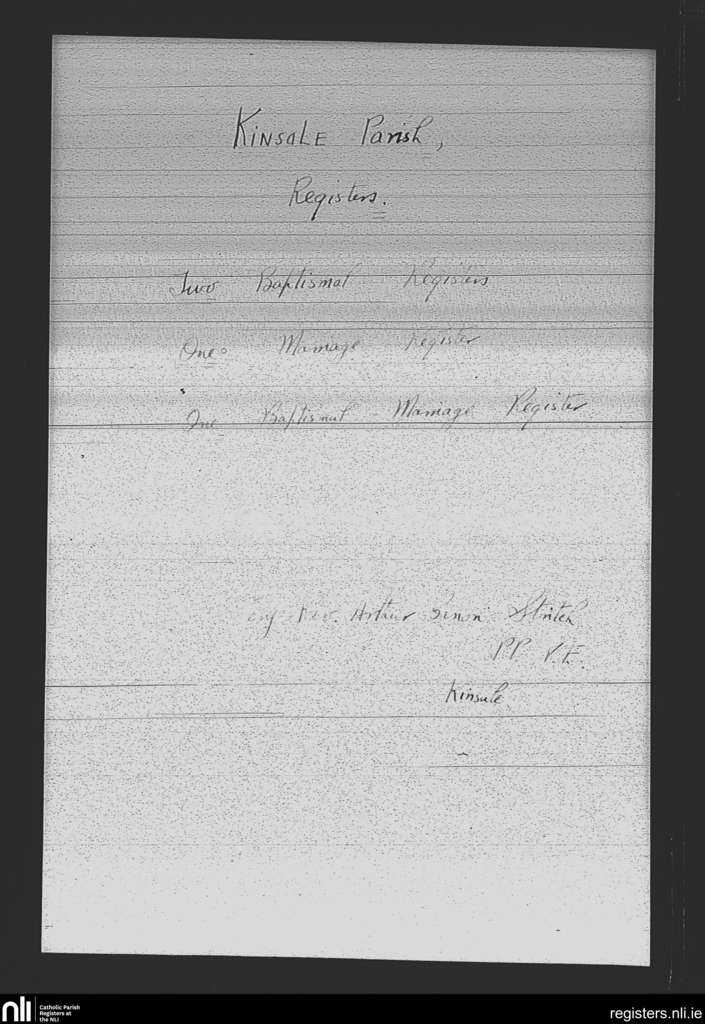 KINSALE Parish,
Registers.
Two Baptismal Registers
One Marriage Register
One Baptismal Marriage Register
Rev. Arthur
PP V.F.
Kinsale
nli
Catholic Parish
Registers at
the NLI
registers.nli.ie